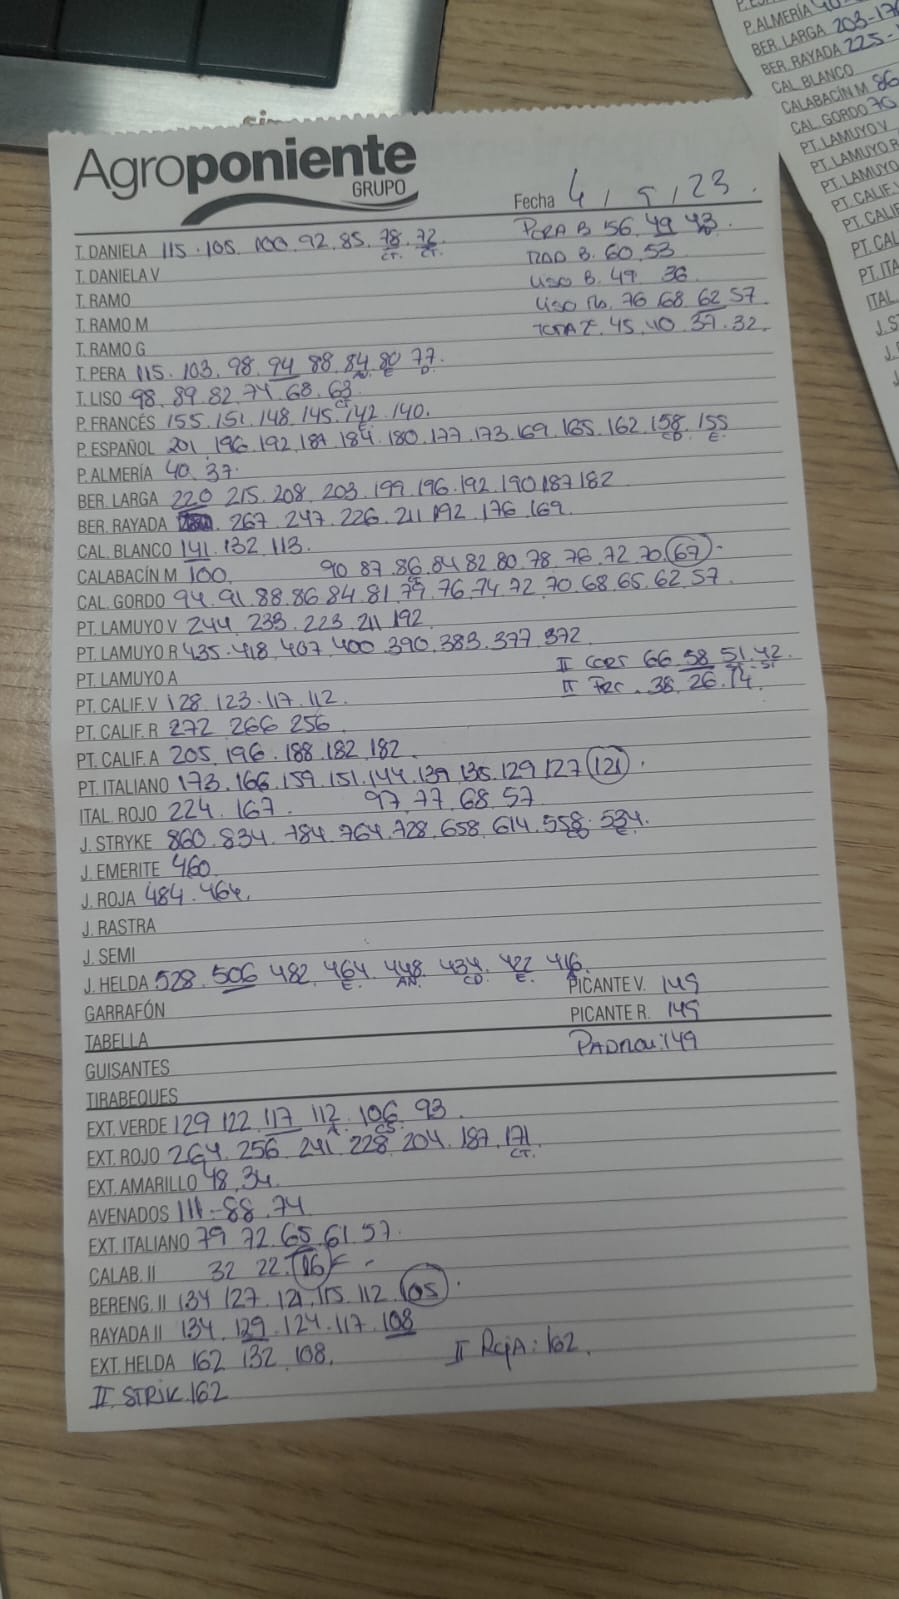 Agroponiente
GRUPO
Fecha 4 / 5 / 23.
PERA B 56.49 43.
T. DANELA 115.105.100.92.85.78.72
CT. CT.
ROD B. 60.53
T. DANIELA V
LISO B. 49 36
T. RAMO
LISO Nb. 76.68.62.57.
T. RAMO M
45.40.37.32.
T. RAMO G
T. PERA 115.103.98.94.88.84.80.77.
T. LISO 98.89.82.74.68.63
CT.
P. FRANCÉS 155.151.148.145.142.140.
E.
P. ESPAÑOL 201.196.192.187.184.180.177.173.169.165.162.158.155
CD. E.
P. ALMERÍA 40.37.
BER. LARGA 220 215.208.203.199.196.192.190187182
BER. RAYADA 267.247.226.211.192.176.169.
CAL. BLANCO 141.132.113.
CALABACÍN M 100. 90 87.86.84.82.80.78.76.72.70.67.
CAL. GORDO 94.91.88.86.84.81.79.76.74.72.70.68.65.62.57.
PT. LAMUYO V 244.233.223.211.192.
PT. LAMUYO R 435.418.407.400.390.383.377.372
PT. LAMUYO A
II CORT 66.58.51.42.
II 38.26.14.
PT. CALIF. V 128.123.117.112.
PT. CALIF. R 272 266 256.
PT. CALIF. A 205.196.188.182.182.
PT. ITALIANO 173.166.159.151.144.139.135.129.127.121.
ITAL. ROJO 224.167. 97.77.68.57
J. STRYKE 860.834.784.764.728.658.614.558.534.
CD. E.
J. EMERITE 460.
J. ROJA 484.464.
J. RASTRA
J. SEMI
J. HELDA 528.506 482.464.448.434.422.416.
E. AN. CD. E.
PICANTE V. 149
GARRAFÓN
PICANTE R. 149
TABELLA
PADRON: 149
GUISANTES
TIRABEQUES
EXT. VERDE 129 122.117.112.106.93.
A. CS.
EXT. ROJO 264.256.241.228.204.187.171.
CT.
EXT. AMARILLO 48.34.
AVENADOS 111.-88.74
EXT. ITALIANO 79.72.65.61.57.
CALAB. II 32 22.16
BERENG. II 134 127.121.115.112.105.
RAYADA II 134.129.124.117.108
EXT. HELDA 162 132.108.
II ROJA: 162.
II STRIK.162
P. ALMERÍA 40
BER. LARGA 203-17
BER. RAYADA 225-
CAL. BLANCO
CALABACÍN M 86
CAL. GORDO 70
PT. LAMUYO V
PT. LAMUYO R
PT. LAMUYO
PT. CALIF.
PT. CALIF
PT. CAL
PT. ITA
ITAL.
J. S